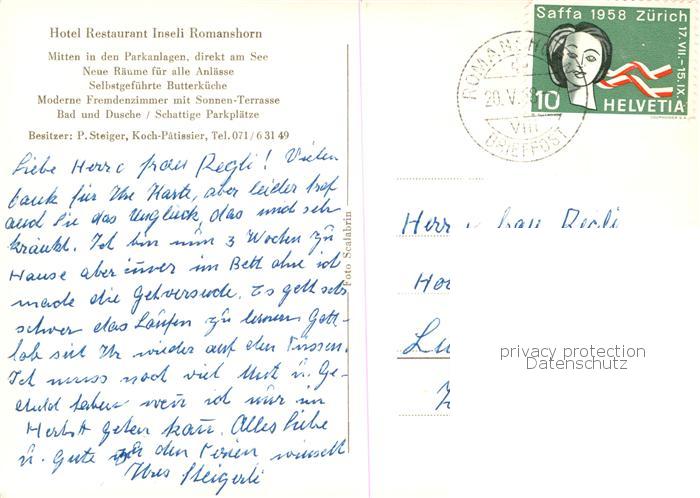 Hotel Restaurant Inseli Romanshorn
Mitten in den Parkanlagen, direkt am See
Neue Räume für alle Anlässe
Selbstgeführte Butterküche
Moderne Fremdenzimmer mit Sonnen-Terrasse
Bad und Dusche / Schattige Parkplätze
Besitzer: P. Steiger, Koch-Pâtissier, Tel. 071/6 31 49
Liebe Herr & Frau Regli! Vielen
Dank für Ihre Karte, aber leider traf
auch Sie das Unglück, das uns sehr
kränkt. Ich bin nun 3 Wochen zu
Hause aber immer im Bett ohne ich
mache die Gehversuche. Es geht sehr
schwer das Laufen zu lernen Gott-
lob seit Ihr wieder auf den Füssen.
Ich muss noch viel Mut u. Ge-
duld haben wenn ich nur im
Herbst gehen kann. Alles Liebe
u. Gute zu den Ferien wünscht
Ihres Steigerli
Foto Scalabrin
Saffa 1958 Zürich
17.VII.-15.IX.
10
HELVETIA
ROMANSHORN
20.V.58
VIII
BRIEFPOST
Herr u Frau Regli
privacy protection
Datenschutz